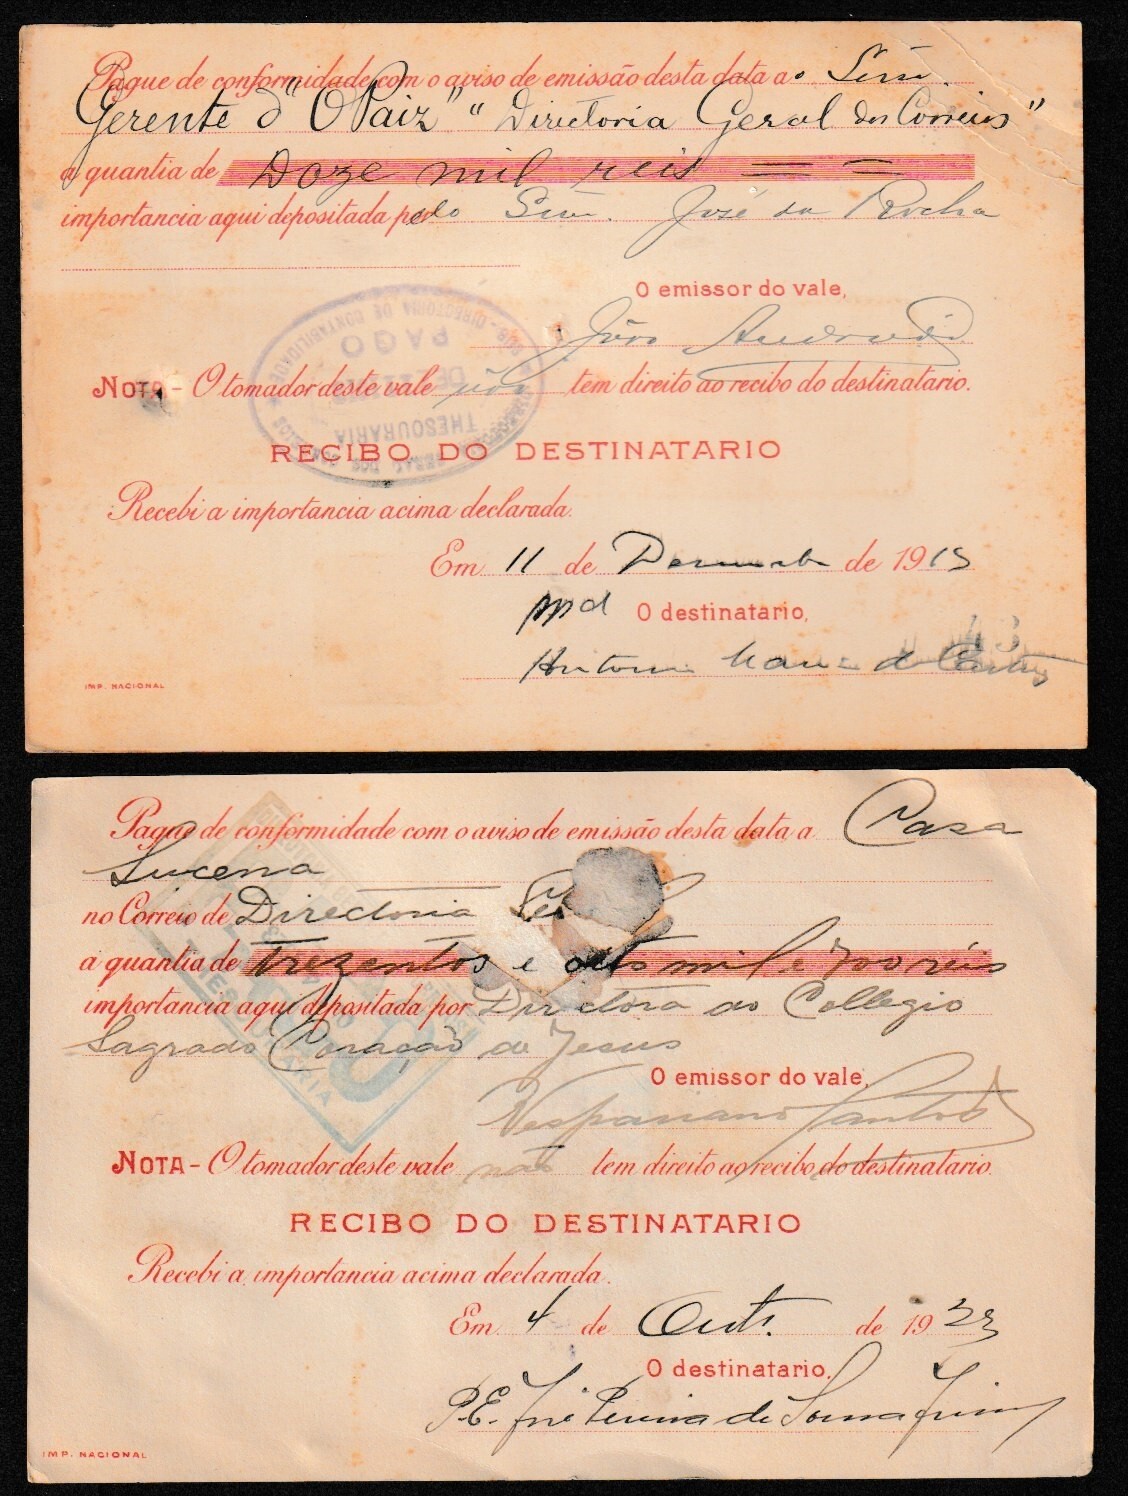 Pague de conformidade com o aviso de emissão desta data a o Snr.
Gerente d' "O Paiz" "Directoria Geral dos Correios"
a quantia de Doze mil reis = =
importancia aqui depositada pelo Snr. José da Rocha
O emissor do vale,
João Andrade
NOTA - O tomador deste vale não tem direito ao recibo do destinatario.
SUB-DIRECTORIA DE CONTABILIDADE
PAGO
THESOURARIA
RECIBO DO DESTINATARIO
Recebi a importancia acima declarada.
Em 11 de Dezembro de 1915
O destinatario,
Antonio Maria de
IMP. NACIONAL
Pague de conformidade com o aviso de emissão desta data a Casa
Lucena
no Correio de Directoria
a quantia de Trezentos e oito mil e 700 réis
importancia aqui depositada por Directora do Collegio
Sagrado Coração de Jesus
O emissor do vale,
Vespasiano Santos
NOTA - O tomador deste vale não tem direito ao recibo do destinatario.
RECIBO DO DESTINATARIO
Recebi a importancia acima declarada.
Em 4 de Outº. de 1923
O destinatario,
P.E. José Pereira de Souza
IMP. NACIONAL